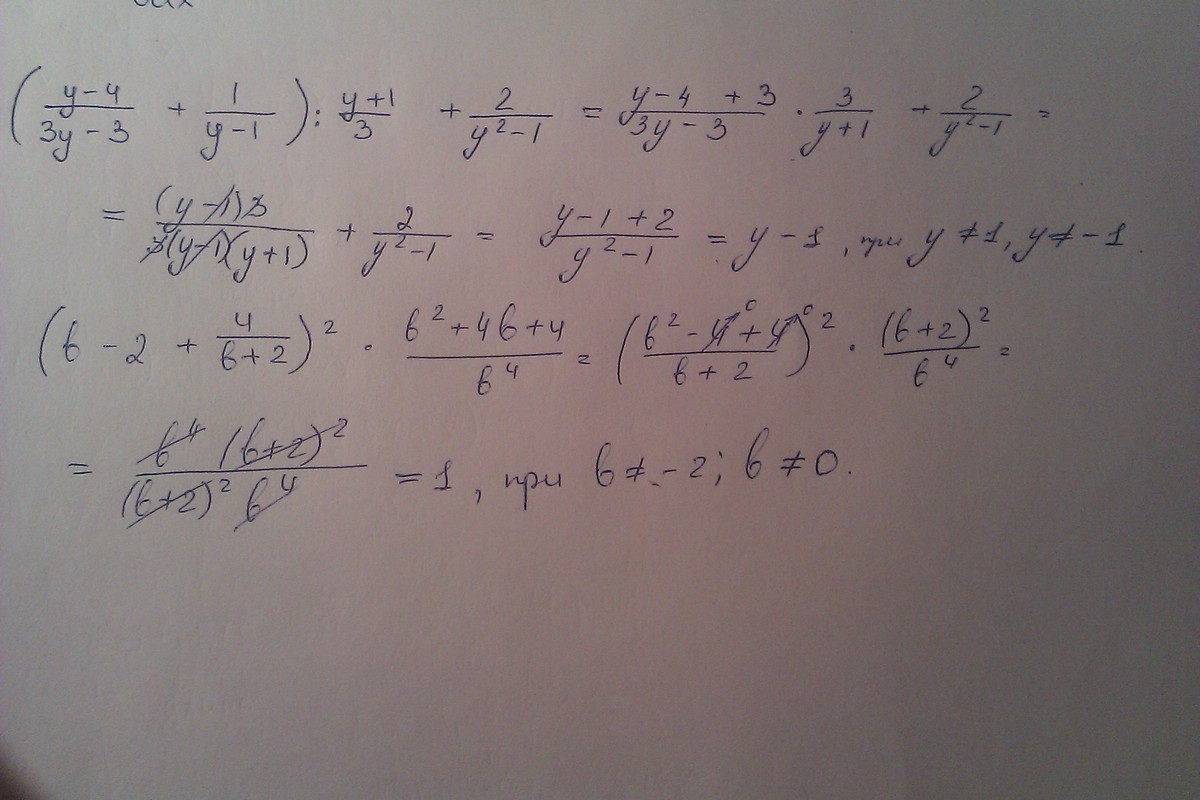 ( (y-4)/(3y-3) + 1/(y-1) ) : (y+1)/3 + 2/(y²-1) = (y-4+3)/(3y-3) · 3/(y+1) + 2/(y²-1) =
= (y-1)3/(3(y-1)(y+1)) + 2/(y²-1) = (y-1+2)/(y²-1) = y-1, при y≠1, y≠-1.
(b - 2 + 4/(b+2))² · (b²+4b+4)/b⁴ = ((b²-4⁰+4⁰)/(b+2))² · (b+2)²/b⁴ =
= b⁴(b+2)²/((b+2)² b⁴) = 1, при b≠-2; b≠0.